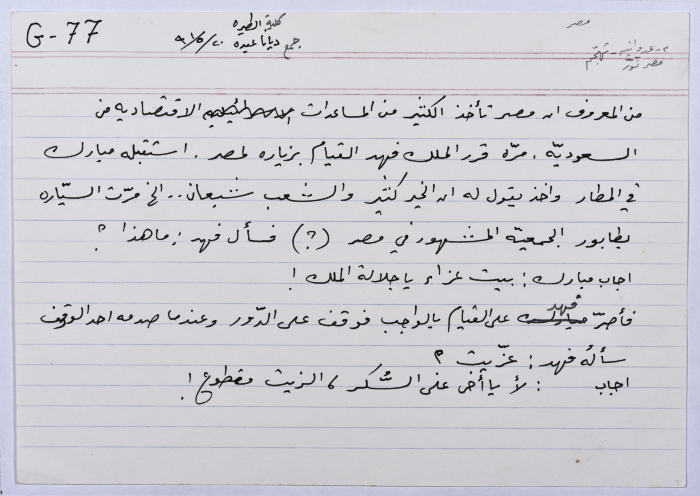 G-77
كلية الطيره
جمع ديانا عبيده
٩١/٥/٢٠
مصر
من المعروف ان مصر تأخذ الكثير من المساعدات الاقتصاديه من
السعوديّه. مرّه قرر الملك فهد القيام بزياره لمصر. استقبله مبارك
في المطار واخذ يقول له ان الخير كثير والشعب شبعان.. الخ مرّت السيّاره
بطابور الجمعيّة المشهور في مصر (؟) فسأل فهد: ما هذا؟
اجاب مبارك: بيت عزاء يا جلالة الملك!
فأصرّ فهد على القيام بالواجب فوقف على الدّور وعندما صدمه احد الوقف
سأله فهد: عزّيت؟
اجاب : لأ يا أخى على السُّكر، الزيت مقطوع!